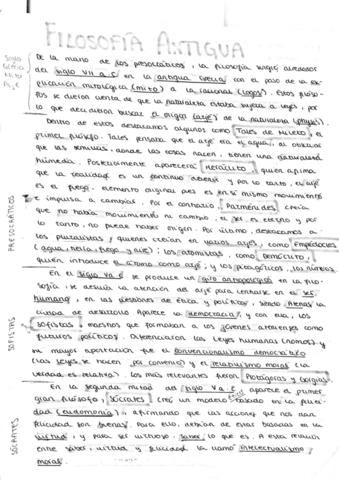 FILOSOFÍA ANTIGUA
De la mano de los presocráticos, la filosofía surgió alrededor
del siglo VII a.C en la antigua Grecia con el paso de la ex-
plicación mitológica (mito) a la racional (logos). Estos filóso-
fos se dieron cuenta de que la naturaleza estaba sujeta a leyes, por
lo que decidieron buscar el origen (arjé) de la naturaleza (physis).
Dentro de estos destacamos algunos como Tales de Mileto, el
primer filósofo. Tales pensaba que el arjé era el agua, al observar
que las semillas, donde las cosas nacen, tienen una naturaleza
húmedia. Posteriormente aparecerá Heráclito, quien afirma
que la realidad es un continuo devenir y por lo tanto, el arjé
es el fuego, elemento original pues es en sí mismo movimiento
e impulsa a cambiar. Por el contrario Parménides creía
que no había movimiento ni cambio, el ser es eterno y por
lo tanto, no puede haber origen. Por último, destacamos a
los pluralistas, quienes creían en varios arjés, como Empédocles
(agua, tierra, fuego y aire); los atomistas, como Demócrito,
quien introduce el átomo como arjé; y los pitagóricos, los números
En el siglo V a.C se produce un giro antropológico en la filo-
sofía, se desvía la atención del arjé para centrarse en el ser
humano, en las cuestiones de ética y política, siendo Atenas la
ciudad de desarrollo. Aparece la democracia, y con ella, los
sofistas, maestros que formaban a los jóvenes atenienses como
futuros políticos. Diferenciaron las leyes humanas (nomos) y
su mayor aportación que el convencionalismo democrático
(las leyes se hacen por convenio) y el relativismo moral (la
verdad es relativa). Los más relevantes fueron Protágoras y Gorgias.
En la segunda mitad del siglo V a.C, aparece el primer
gran filósofo, Sócrates. Creó un modelo basado en la felici-
dad (eudaimonía), afirmando que las acciones que nos dan
felicidad son buenas. Para ello, debían de estar basadas en la
virtud, y para ser virtuoso, saber lo que es. A esta relación
entre saber, virtud y felicidad la llamó intelectualismo
moral.
Siglo
Grecia
Mito
Arjé
PRESOCRÁTICOS
SOFISTAS
SÓCRATES